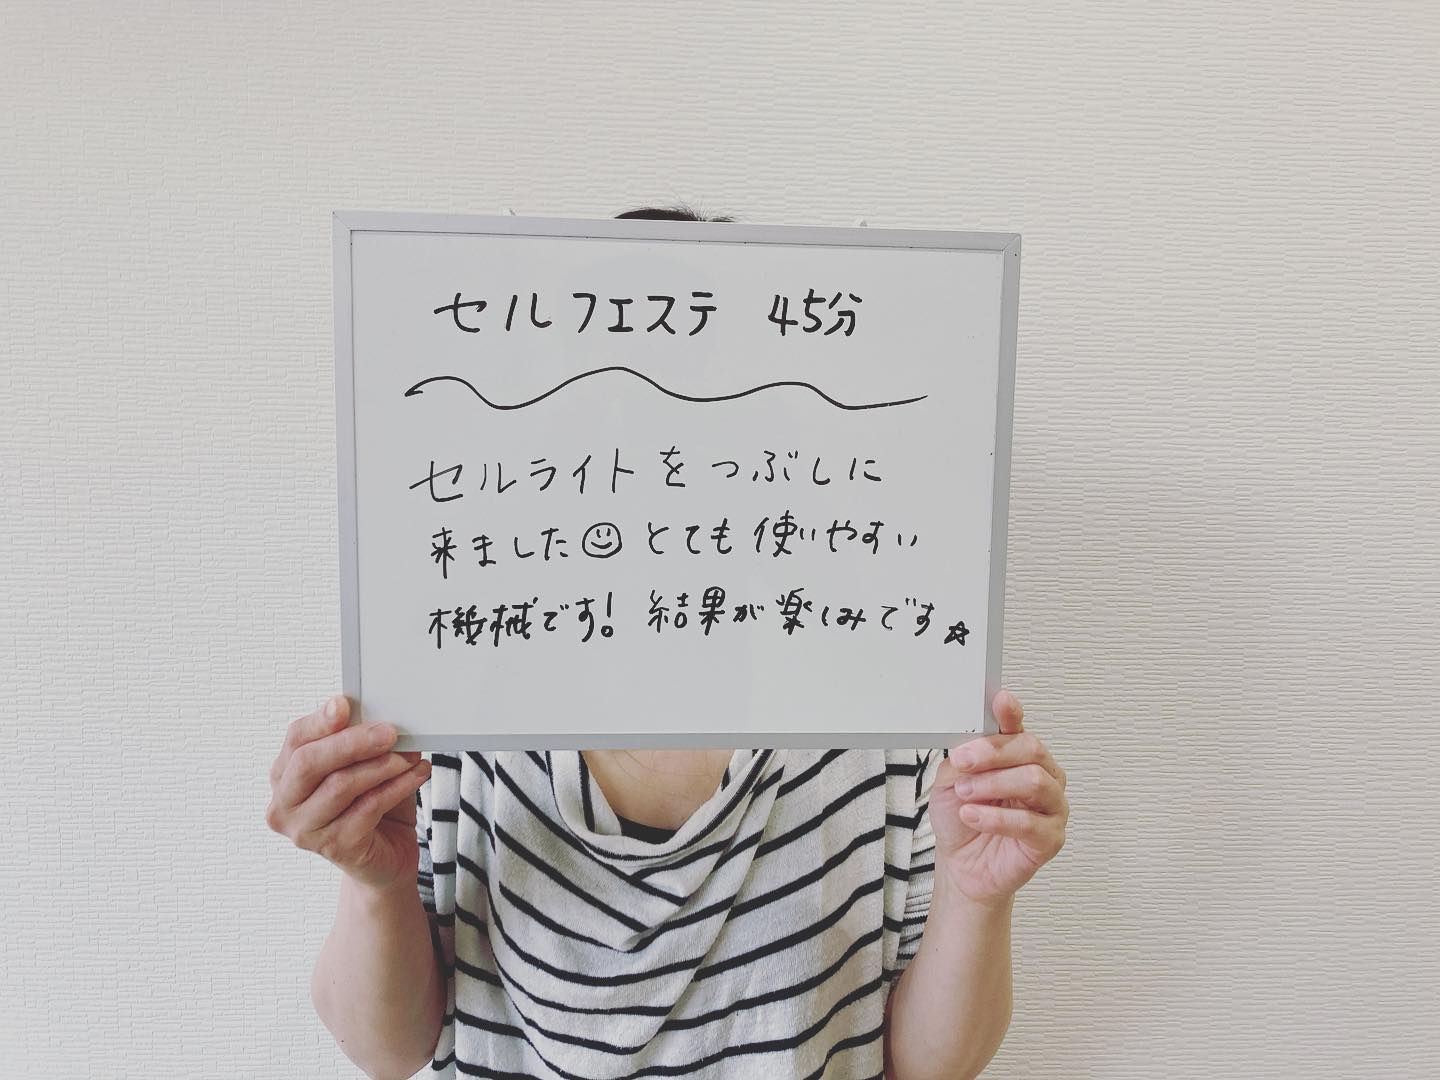 セルフエステ 45分
セルライトをつぶしに
来ました☺とても使いやすい
機械です! 結果が楽しみです☆